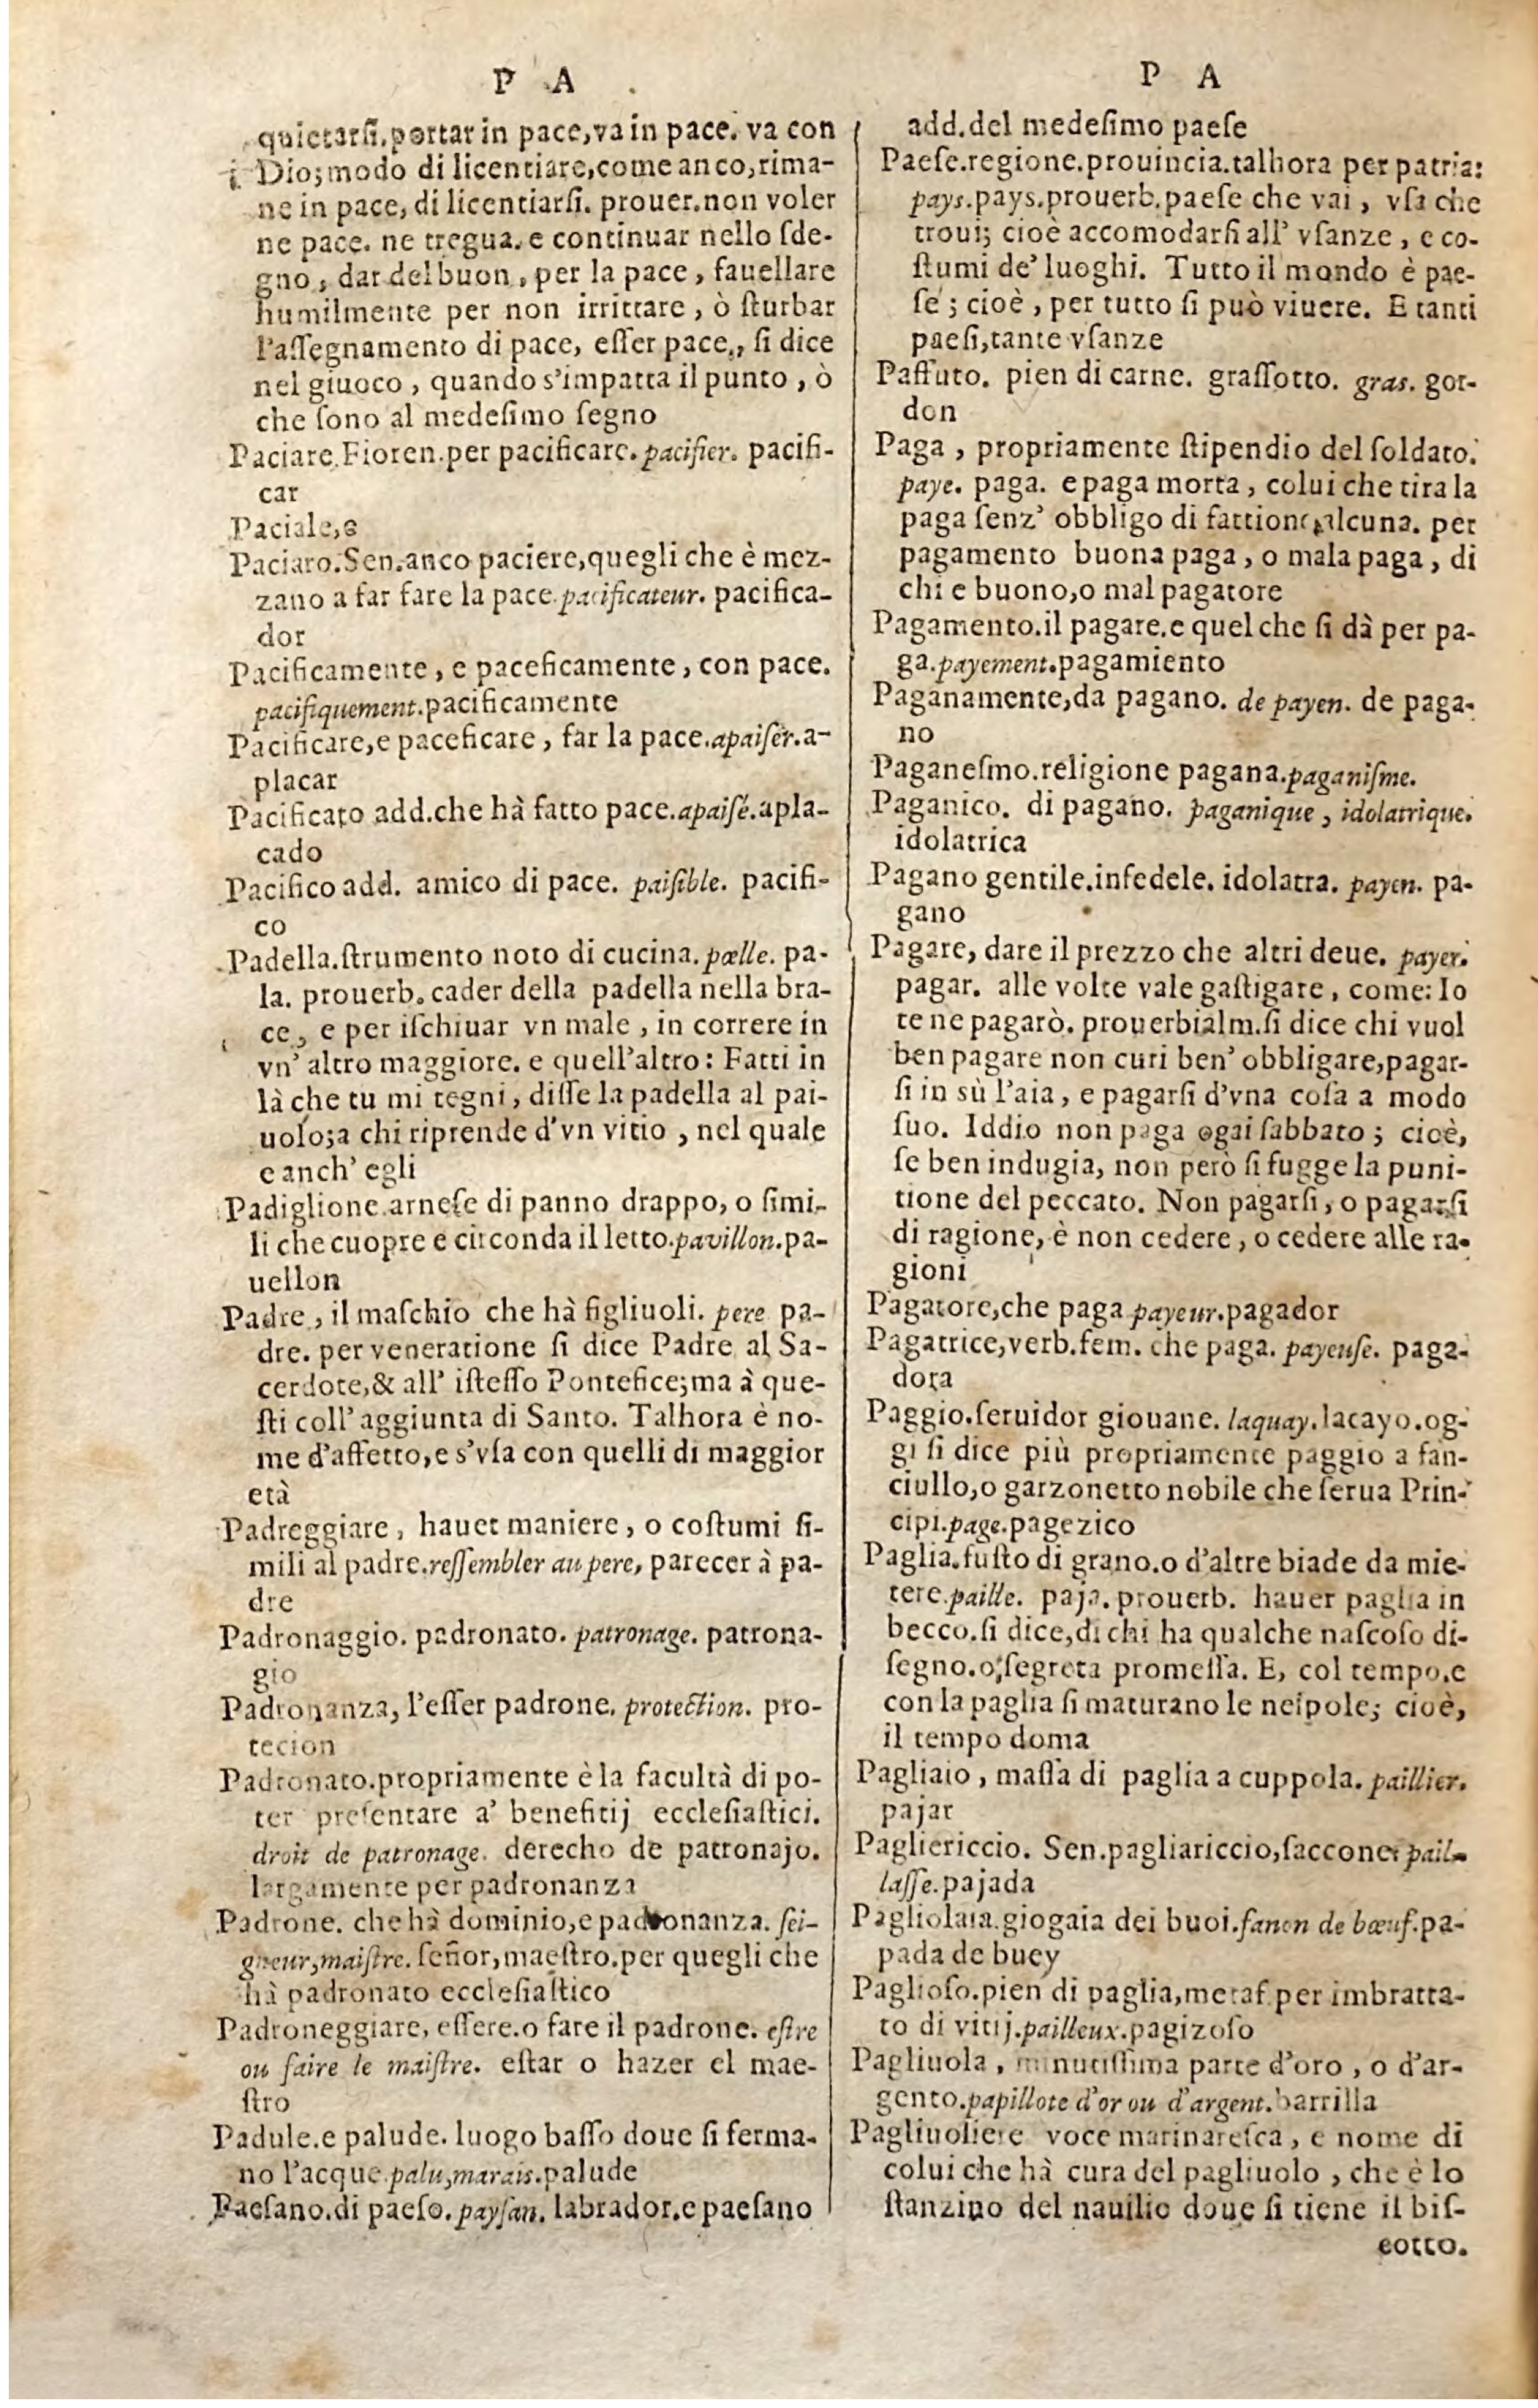 P A
quietarſi.portar in pace,va in pace. va con
Dio;modo di licentiare,come anco,rima-
ne in pace, di licentiarſi. prouer.non voler
ne pace. ne tregua. e continuar nello ſde-
gno, dar del buon, per la pace, fauellare
humilmente per non irrittare, ò ſturbar
l'aſſegnamento di pace, eſſer pace., ſi dice
nel giuoco, quando s'impatta il punto, ò
che ſono al medeſimo ſegno
Paciare.Fioren.per pacificare.pacifier. pacifi-
car
Paciale,e
Paciaro.Sen.anco paciere,quegli che è mez-
zano a far fare la pace.pacificateur. pacifica-
dor
Pacificamente, e paceficamente, con pace.
pacifiquement.pacificamente
Pacificare,e paceficare, far la pace.apaiſer.a-
placar
Pacificato add.che hà fatto pace.apaiſé.apla-
cado
Pacifico add. amico di pace. paiſible. pacifi-
co
Padella.ſtrumento noto di cucina.pœlle. pa-
la. prouerb.cader della padella nella bra-
ce, e per iſchiuar vn male, in correre in
vn' altro maggiore. e quell'altro: Fatti in
là che tu mi tegni, diſſe la padella al pai-
uolo;a chi riprende d'vn vitio, nel quale
e anch' egli
Padiglione.arneſe di panno drappo, o ſimi-
li che cuopre e circonda il letto.pavillon.pa-
uellon
Padre, il maſchio che hà figliuoli. pere pa-
dre. per veneratione ſi dice Padre al Sa-
cerdote,& all' iſteſſo Pontefice;ma à que-
ſti coll' aggiunta di Santo. Talhora è no-
me d'affetto,e s'vſa con quelli di maggior
età
Padreggiare, hauer maniere, o coſtumi ſi-
mili al padre.reſſembler au pere, parecer à pa-
dre
Padronaggio. padronato. patronage. patrona-
gio
Padronanza, l'eſſer padrone. protection. pro-
tecion
Padronato.propriamente è la facultà di po-
ter preſentare a' benefitij eccleſiaſtici.
droit de patronage. derecho de patronajo.
largamente per padronanza
Padrone. che hà dominio,e padronanza. ſei-
gneur,maiſtre. ſeñor,maeſtro.per quegli che
hà padronato eccleſiaſtico
Padroneggiare, eſſere.o fare il padrone. eſtre
ou faire le maiſtre. eſtar o hazer el mae-
ſtro
Padule.e palude. luogo baſſo doue ſi ferma-
no l'acque.palu,marais.palude
Paeſano.di paeſo.payſan. labrador.e paeſano
P A
add.del medeſimo paeſe
Paeſe.regione.prouincia.talhora per patria:
pays.pays.prouerb.paeſe che vai, vſa che
troui; cioè accomodarſi all' vſanze, e co-
ſtumi de' luoghi. Tutto il mondo è pae-
ſe; cioè, per tutto ſi può viuere. E tanti
paeſi,tante vſanze
Paffuto. pien di carne. graſſotto. gras. gor-
don
Paga, propriamente ſtipendio del ſoldato.
paye. paga. e paga morta, colui che tira la
paga ſenz' obbligo di fattione alcuna. per
pagamento buona paga, o mala paga, di
chi e buono,o mal pagatore
Pagamento.il pagare.e quel che ſi dà per pa-
ga.payement.pagamiento
Paganamente,da pagano. de payen. de paga-
no
Paganeſmo.religione pagana.paganiſme.
Paganico. di pagano. paganique, idolatrique.
idolatrica
Pagano gentile.infedele. idolatra. payen. pa-
gano
Pagare, dare il prezzo che altri deue. payer.
pagar. alle volte vale gaſtigare, come: Io
te ne pagarò. prouerbialm.ſi dice chi vuol
ben pagare non curi ben' obbligare,pagar-
ſi in sù l'aia, e pagarſi d'vna coſa a modo
ſuo. Iddio non paga ogai ſabbato; cioè,
ſe ben indugia, non però ſi fugge la puni-
tione del peccato. Non pagarſi, o pagarſi
di ragione, è non cedere, o cedere alle ra-
gioni
Pagatore,che paga payeur.pagador
Pagatrice,verb.fem. che paga. payeuſe. paga-
dora
Paggio.ſeruidor giouane. laquay.lacayo.og-
gi ſi dice più propriamente paggio a fan-
ciullo,o garzonetto nobile che ſerua Prin-
cipi.page.pagezico
Paglia.fuſto di grano.o d'altre biade da mie-
tere.paille. paja. prouerb. hauer paglia in
becco.ſi dice,di chi ha qualche naſcoſo di-
ſegno.o;ſegreta promeſſa. E, col tempo.e
con la paglia ſi maturano le neſpole; cioè,
il tempo doma
Pagliaio, maſſa di paglia a cuppola. paillier.
pajar
Pagliericcio. Sen.pagliariccio,ſaccone. pail-
laſſe.pajada
Pagliolaia.giogaia dei buoi.fanon de bœuf.pa-
pada de buey
Paglioſo.pien di paglia,metaf.per imbratta-
to di vitij.pailleux.pagizoſo
Pagliuola, minutiſſima parte d'oro, o d'ar-
gento.papillote d'or ou d'argent.barrilla
Pagliuoliere voce marinareſca, e nome di
colui che hà cura del pagliuolo, che è lo
ſtanzino del nauilio doue ſi tiene il biſ-
cotto.